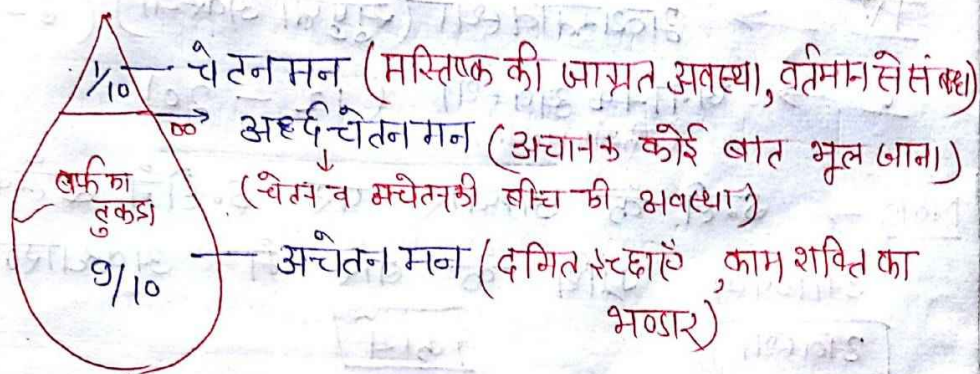 1/10 — चेतन मन (मस्तिष्क की जाग्रत अवस्था, वर्तमान से संबंध)
अर्द्दचेतन मन (अचानक कोई बात भूल जाना)
(चेतन व अचेतन की बीच की अवस्था)
बर्फ का
टुकडा
9/10 — अचेतन मन (दमित इच्छाएँ, काम शक्ति का
भण्डार)